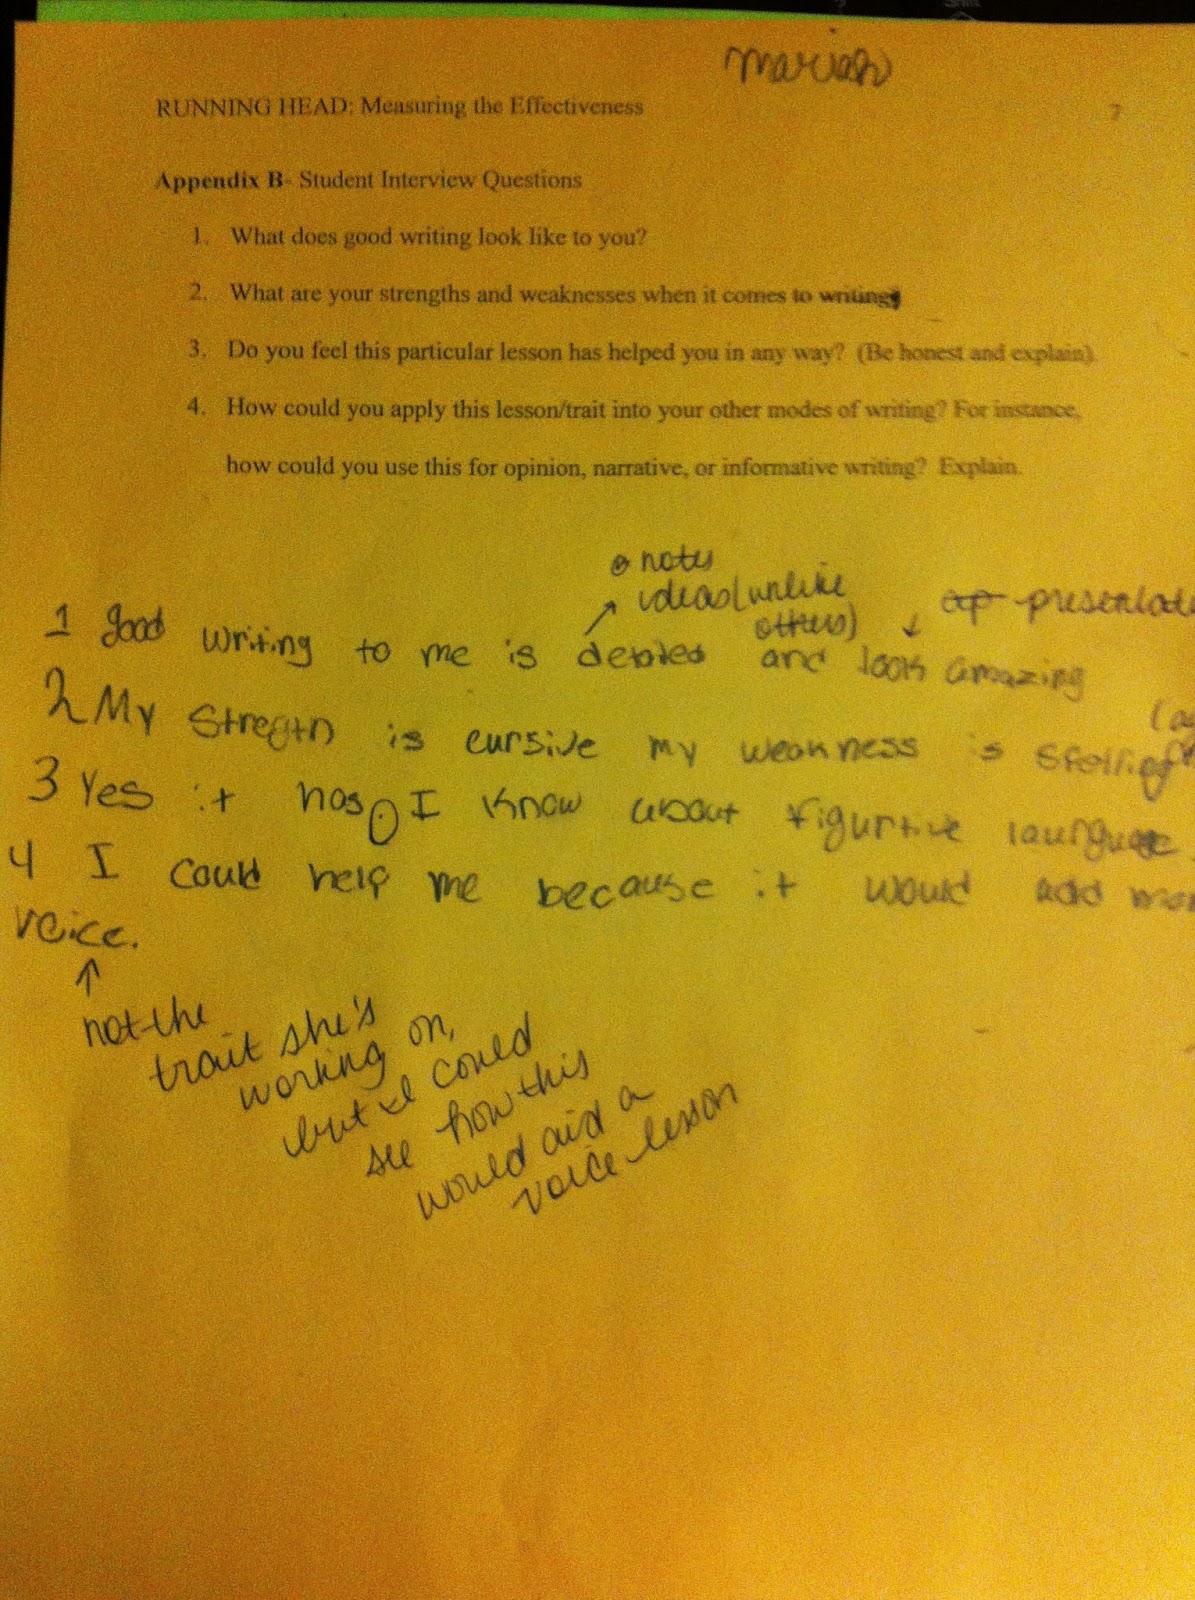 Mariah
RUNNING HEAD: Measuring the Effectiveness
7
Appendix B- Student Interview Questions
1. What does good writing look like to you?
2. What are your strengths and weaknesses when it comes to writing
3. Do you feel this particular lesson has helped you in any way? (Be honest and explain)
4. How could you apply this lesson/trait into your other modes of writing? For instance,
how could you use this for opinion, narrative, or informative writing? Explain.
notes
ideas (unlike
others)
presentati
1 good writing to me is detailed and look amazing
2 My Stregth is cursive my weakness is spelling
3 Yes it has. I know about figurtive
4 I could help me because it would add mor
voice.
not the
trait she's
working on,
but I could
see how this
would aid a
voice lesson